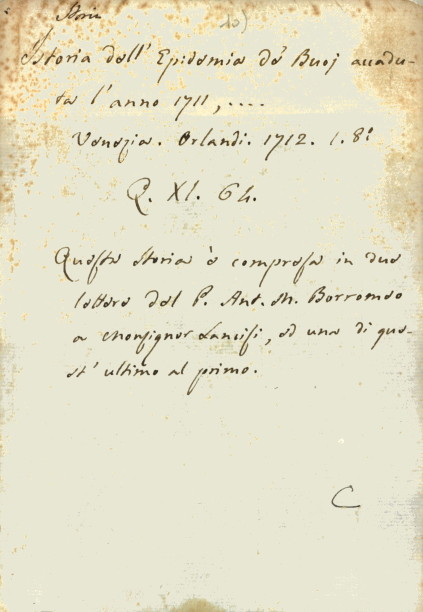 Storia
10)
Istoria dell' Epidemia de' Buoj accadu-
ta l'anno 1711, ....
Venezia. Orlandi. 1712. 1. 8:
Q. XI. 64.
Questa storia è compresa in due
lettere del P. Ant. M. Borromeo
a Monsignor Lancisi, ed una di que-
st' ultimo al primo.
C